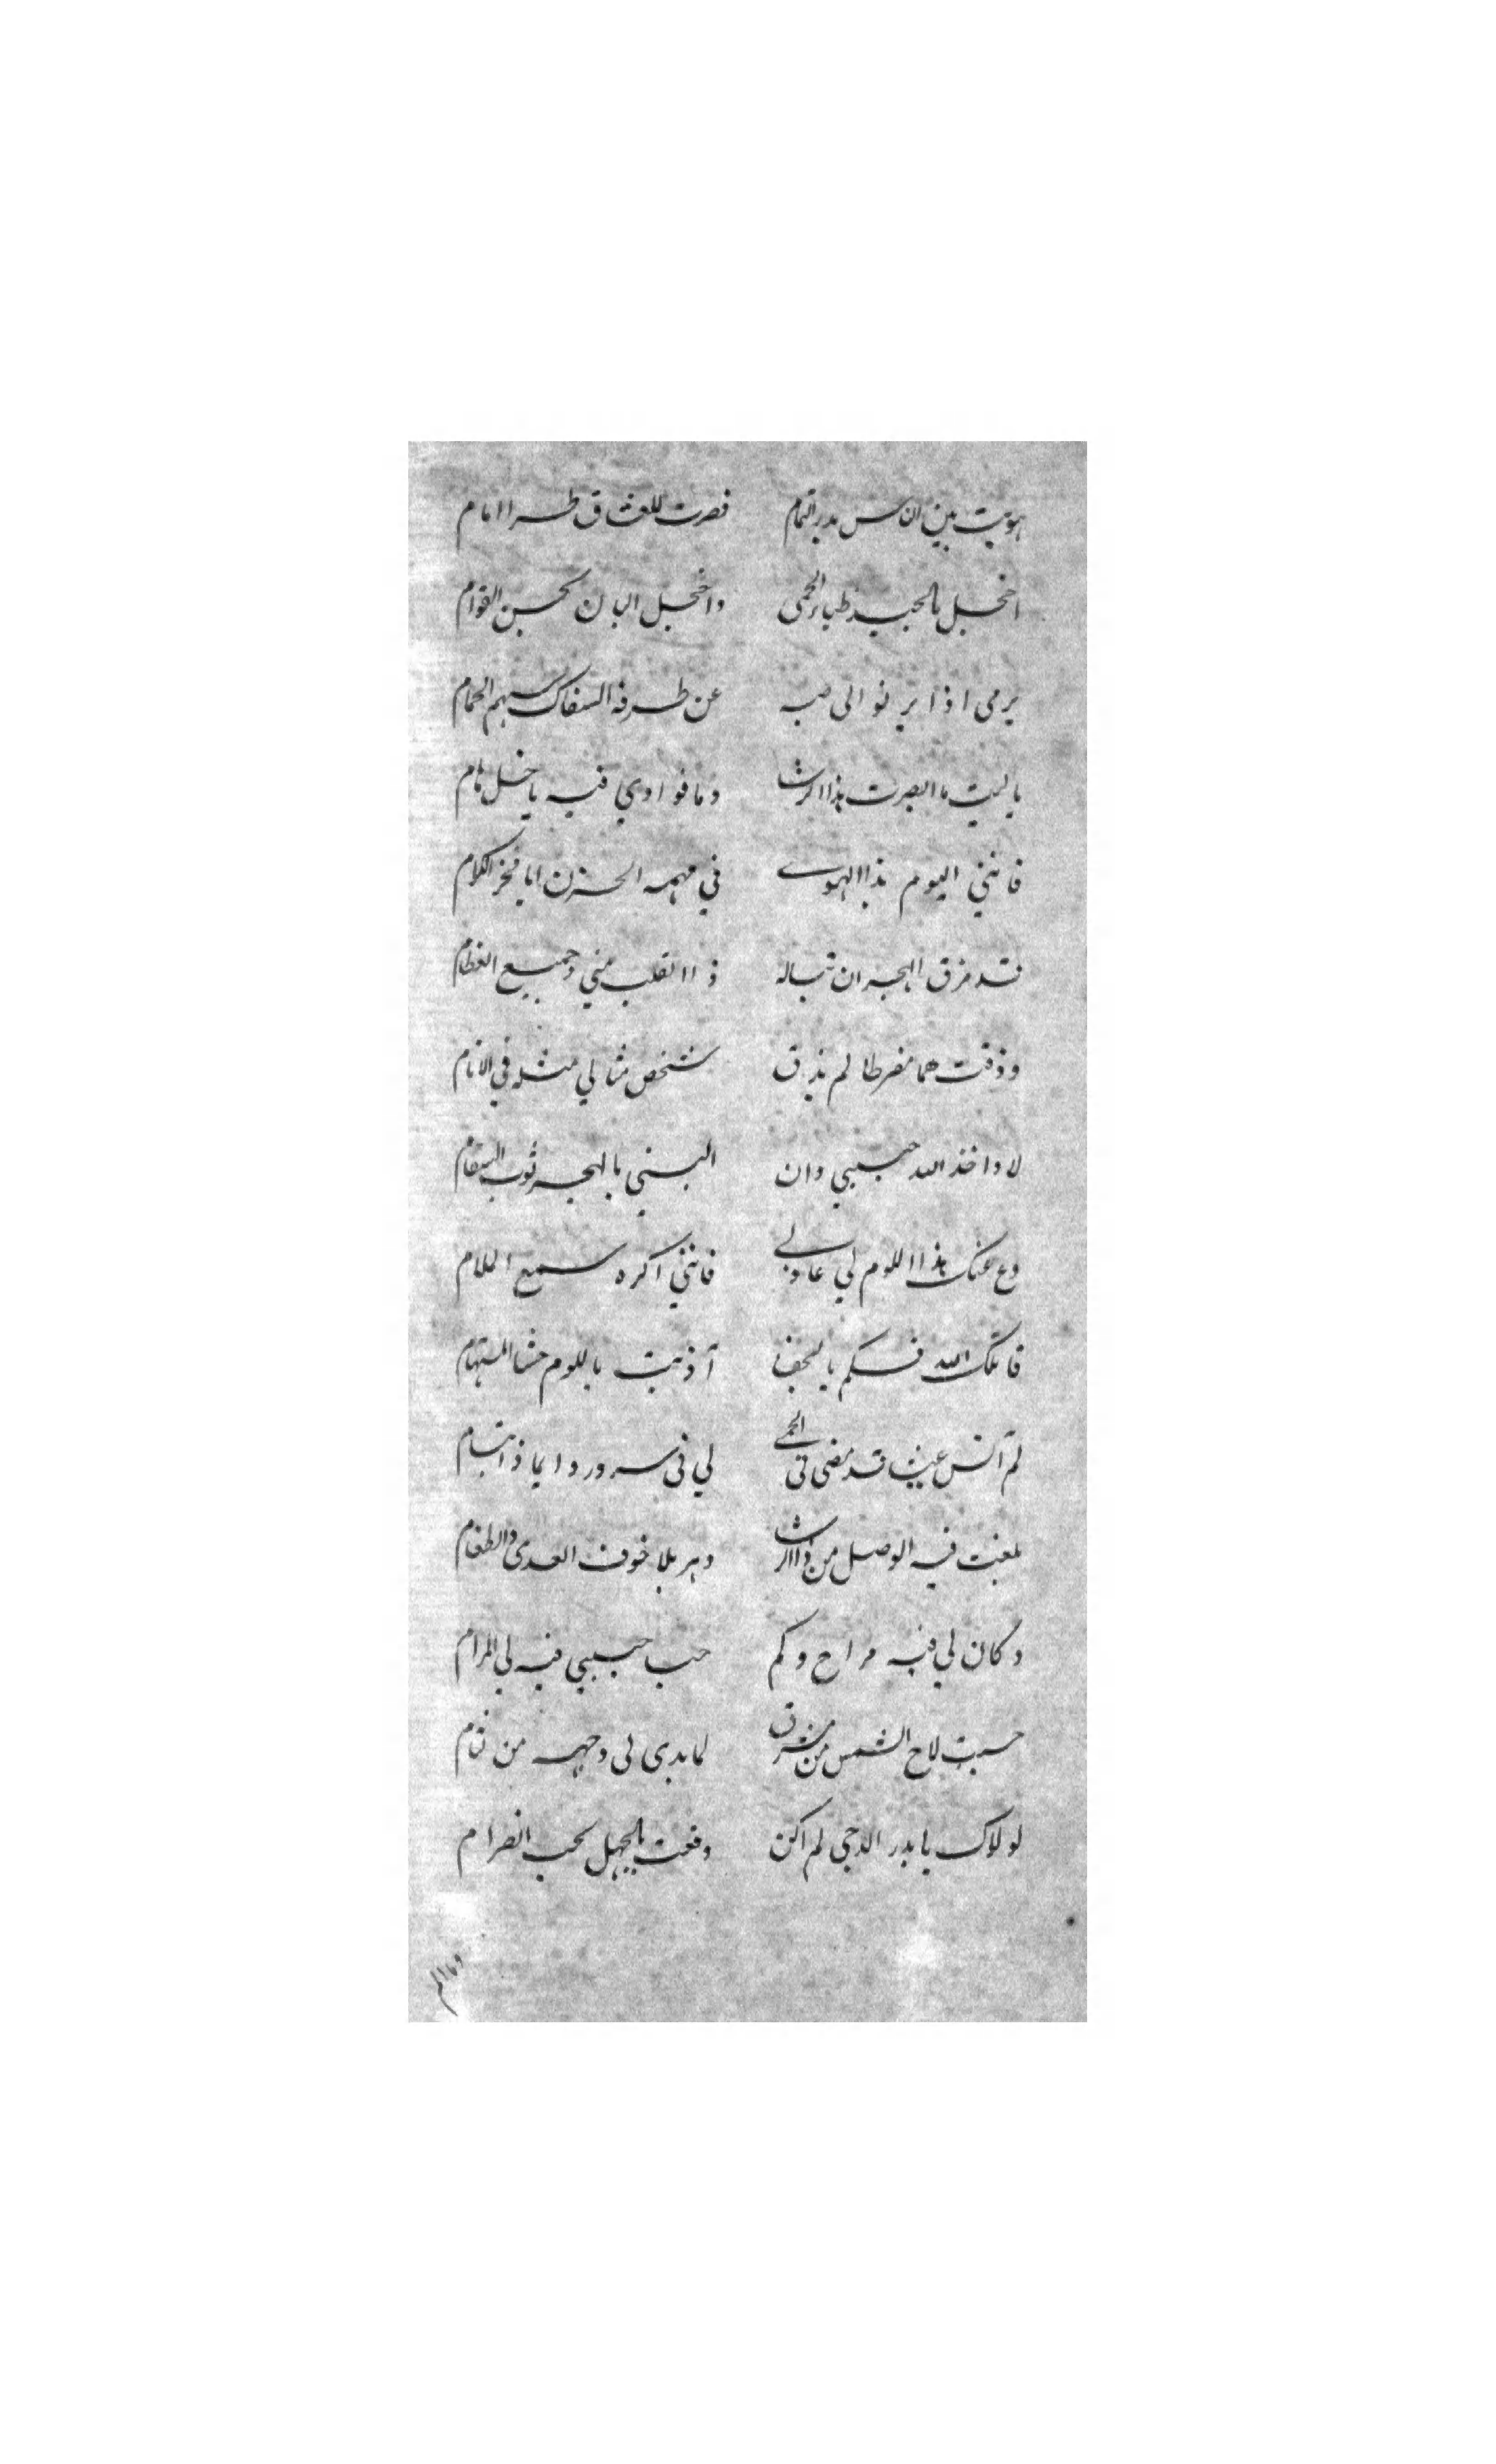 هويت بين الناس بدر التمام فصرت للعشاق طرا امام
اخجل بالجيد ظباء الحمى واخجل البان بحسن القوام
يرمى اذا يرنو الى صبه عن طرفه السفاك سهم الحمام
يا ليت ما ابصرت هذا الرشا وما فوادي فيه يا خل هام
فانني اليوم بذا الهوى في مهمه الحزن ايا فخر الكلام
قد مزق الهجران تباله ذا القلب مني وجميع العظام
وذقت هما مفرطا لم يذق شخص مثالي مثله في الانام
لا واخذ الله حبيبي وان البسني بالهجر ثوب السقام
دع عنك هذا اللوم لي عاذلي فانني اكره سمع الملام
قاتلك الله فكم بالجفا أذيت باللوم حشا المستهام
لم أنس عيش قد مضى في الحمى لي في سرور دايما ذا ابتسام
بلغت فيه الوصل من ذا الرشا دهر بلا خوف العدى والطغام
وكان لي فيه مراح وكم حب حبيبي فيه لي المرام
حسبت لاح الشمس من مشرق لما بدى لى وجهه من لثام
لولاك يا بدر الدجى لم اكن وقعت بالجهل بحب انصرام